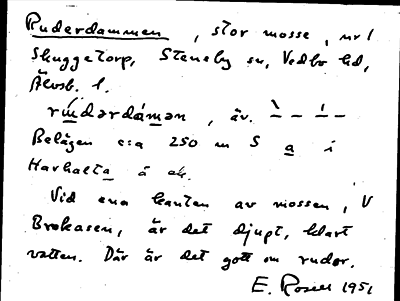 Ruderdammen, stor mosse, nr 1
Skuggetorp, Steneby sn, Vedbo hd,
Älvsb. l.
rúdərdámən, äv. – – – –
Belägen c:a 250 m S a i
Harhalta å ek.
Vid ena kanten av mossen, V
Brokasen, är det djupt, klart
vatten. Där är det gott om rudor.
E. Rosell 1951